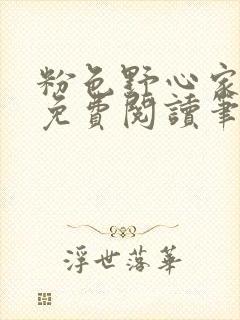 粉色野心家
免費閱讀筆
浮世落華